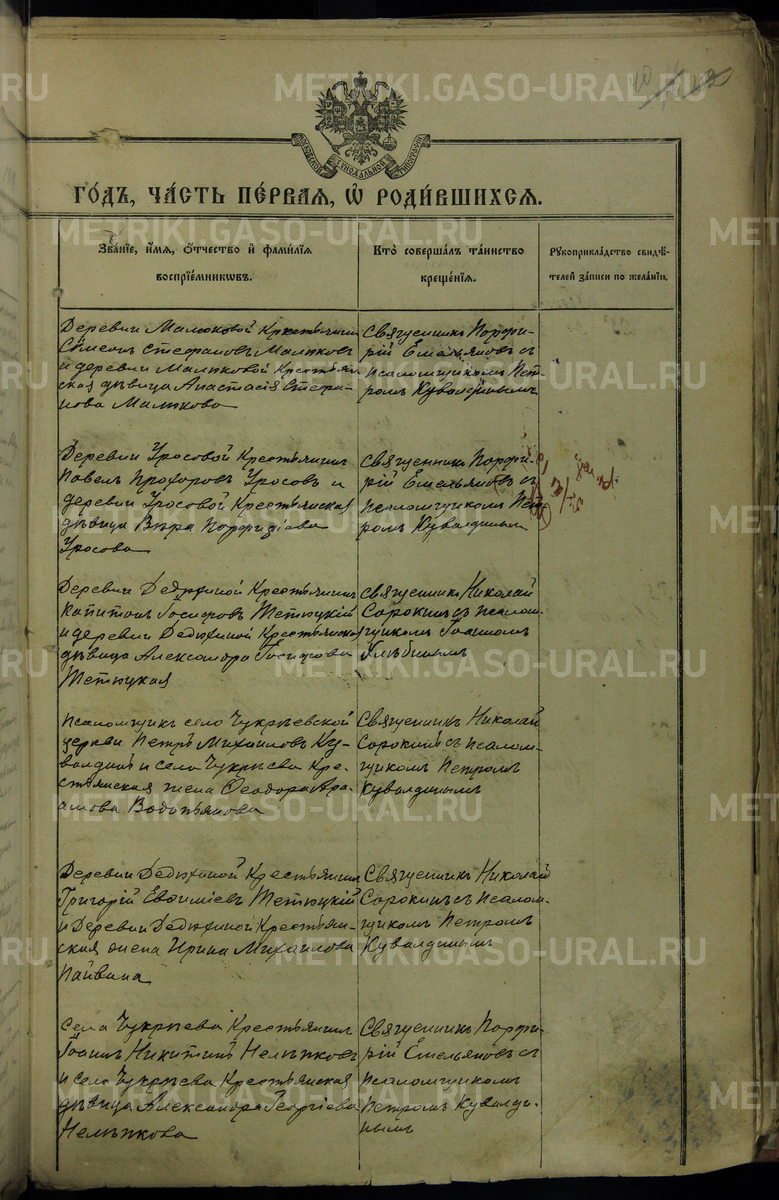 METRIKI.GASO-URAL.RU
МОСКОВСКОЙ СѴНОДАЛЬНОЙ ТИПОГРАФІИ
ГО́ДЪ, ЧА́СТЬ ПЕ́РВАЯ, Ѽ РОДИ́ВШИХСЯ.
Зва́нїе, и҆́мя, ѻ҆́тчество и҆ фами́лїя
воспрїе́мникѡвъ.
Кто̀ соверша́лъ та́инство
креще́нїя.
Рꙋкоприкла́дство свидѣ́-
телей за́писи по жела́нїю.
Деревни Малюковой Крестьянинъ
Сѵмеонъ Стефановъ Малюковъ
и деревни Малюковой Крестьян
ская дѣвица Анастасія Стефа-
нова Малюкова
Священникъ Порфи-
рій Емельяновъ съ
псаломщикомъ Пет-
ромъ Кувалдинымъ
Деревни Уросовой Крестьянинъ
Павелъ Прохоровъ Уросовъ и
деревни Уросовой Крестьянская
дѣвица Вѣра Порфиріева
Уросова
Священникъ Порфи-
рій Емельяновъ съ
псаломщикомъ Пет-
ромъ Кувалдинымъ
Деревни Дедюхиной Крестьянинъ
Капитонъ Іосифовъ Тетюцкій
и деревни Дедюхиной Крестьянская
дѣвица Александра Іосифова
Тетюцкая
Священникъ Николай
Сорокинъ съ псалом-
щикомъ Іоанномъ
Глѣбинымъ
Псаломщикъ села Чукрѣевской
церкви Петръ Михаиловъ Ку-
валдинъ и села Чукрѣева Кре-
стьянская жена Ѳеодора
Водопьянова
Священникъ Николай
Сорокинъ съ псалом-
щикомъ Петромъ
Кувалдинымъ
Деревни Дедюхиной Крестьянинъ
Григорій Евѳиміевъ Тетюцкій
и Деревни Дедюхиной Крестьян-
ская жена Ирина Михаилова
Пайвина
Священникъ Николай
Сорокинъ съ псалом-
щикомъ Петромъ
Кувалдинымъ
Села Чукрѣева Крестьянинъ
Іоаннъ Никитинъ Нелюпковъ
и села Чукрѣева Крестьянская
дѣвица Александра Георгіева
Нелюпкова
Священникъ Порфи-
рій Емельяновъ съ
псаломщикомъ
Петромъ Кувалди-
нымъ